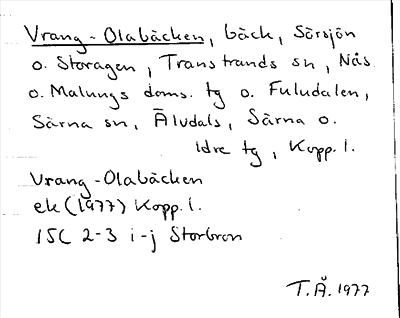 Vrang-Olabäcken, bäck, Sörsjön
o. Storagen, Transtrands sn, Nås
o. Malungs doms. tg o. Fuludalen,
Särna sn, Älvdals, Särna o.
Idre tg, Kopp. l.
Vrang-Olabäcken
ek (1977) Kopp. l.
15C 2-3 i-j Storbron
T.Å. 1977